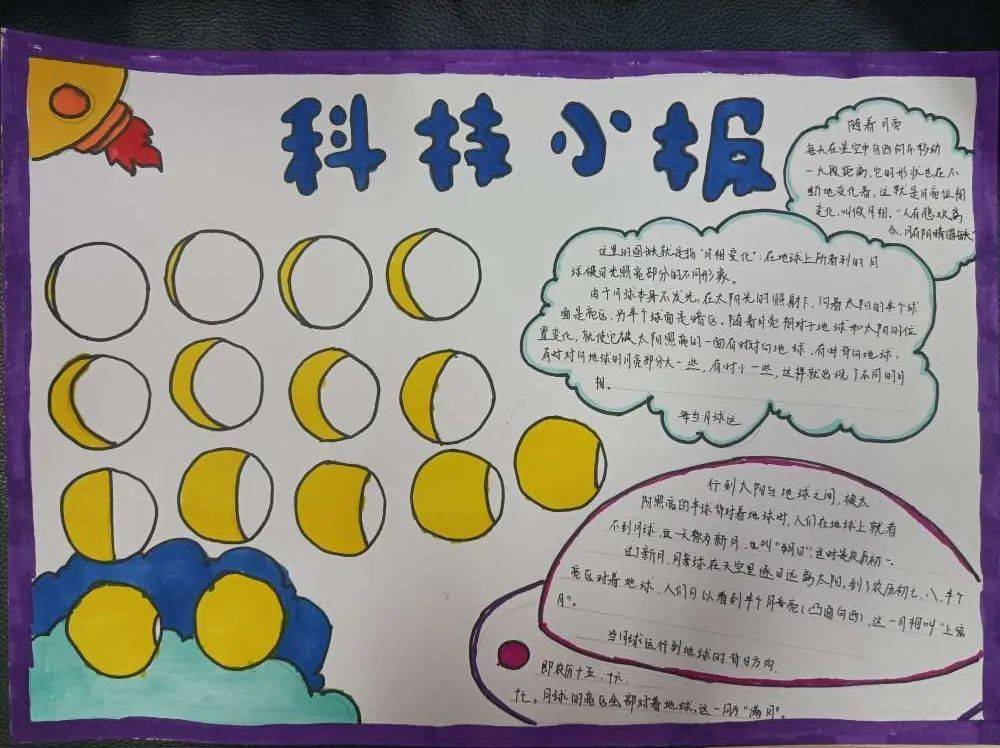 科技小报
随着月亮
每天在星空中自西向东移动
一大段距离,它的形状也在不
断地变化着,这就是月亮位相
变化,叫做月相。"人有悲欢离
合,月有阴晴圆缺。
这里的圆缺就是指"月相变化":在地球上所看到的月
球被日光照亮部分的不同形象。
由于月球本身不发光,在太阳光的照射下,向着太阳的半个球
面是亮区,另半个球面是暗区。随着月亮相对于地球和太阳的位
置变化,就使它被太阳照亮的一面有时对向地球,有时背向地球;
有时对向地球的月亮部分大一些,有时小一些,这样就出现了不同的月
相。
每当月球运
行到太阳与地球之间,被太
阳照亮的半球背对着地球时,人们在地球上就看
不到月球,这一天称为新月,也叫"朔日",这时是农历初一。
过了新月,月球在天空里逐日远离太阳,到了农历初七、八,半个
亮区对着地球,人们可以看到半个月亮(凸面向西),这一月相叫"上弦
月"。
当月球运行到地球的背日方向,
即农历十五、十六、
十七,月球的亮区全部对着地球,这一月"满月"。